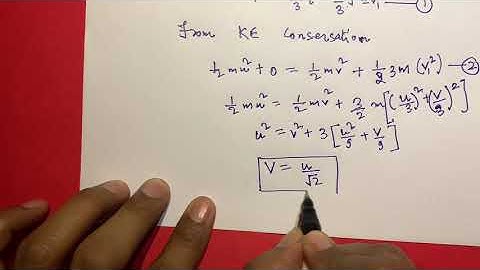 √3 = v₁ — ①
From KE Conservation
½mu² + 0 = ½mv² + ½ 3m (v₁²) — ②
½mu² = ½mv² + 3/2 m[(u/3)² + (v/3)²]
u² = v² + 3[u²/9 + v/9]
V = u/√2